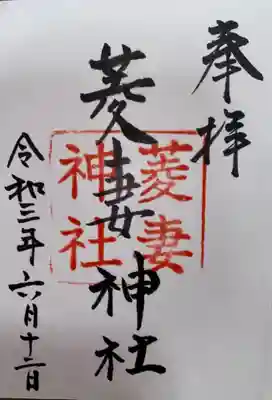 奉拝
菱妻神社
菱妻
神社
令和三年六月十二日